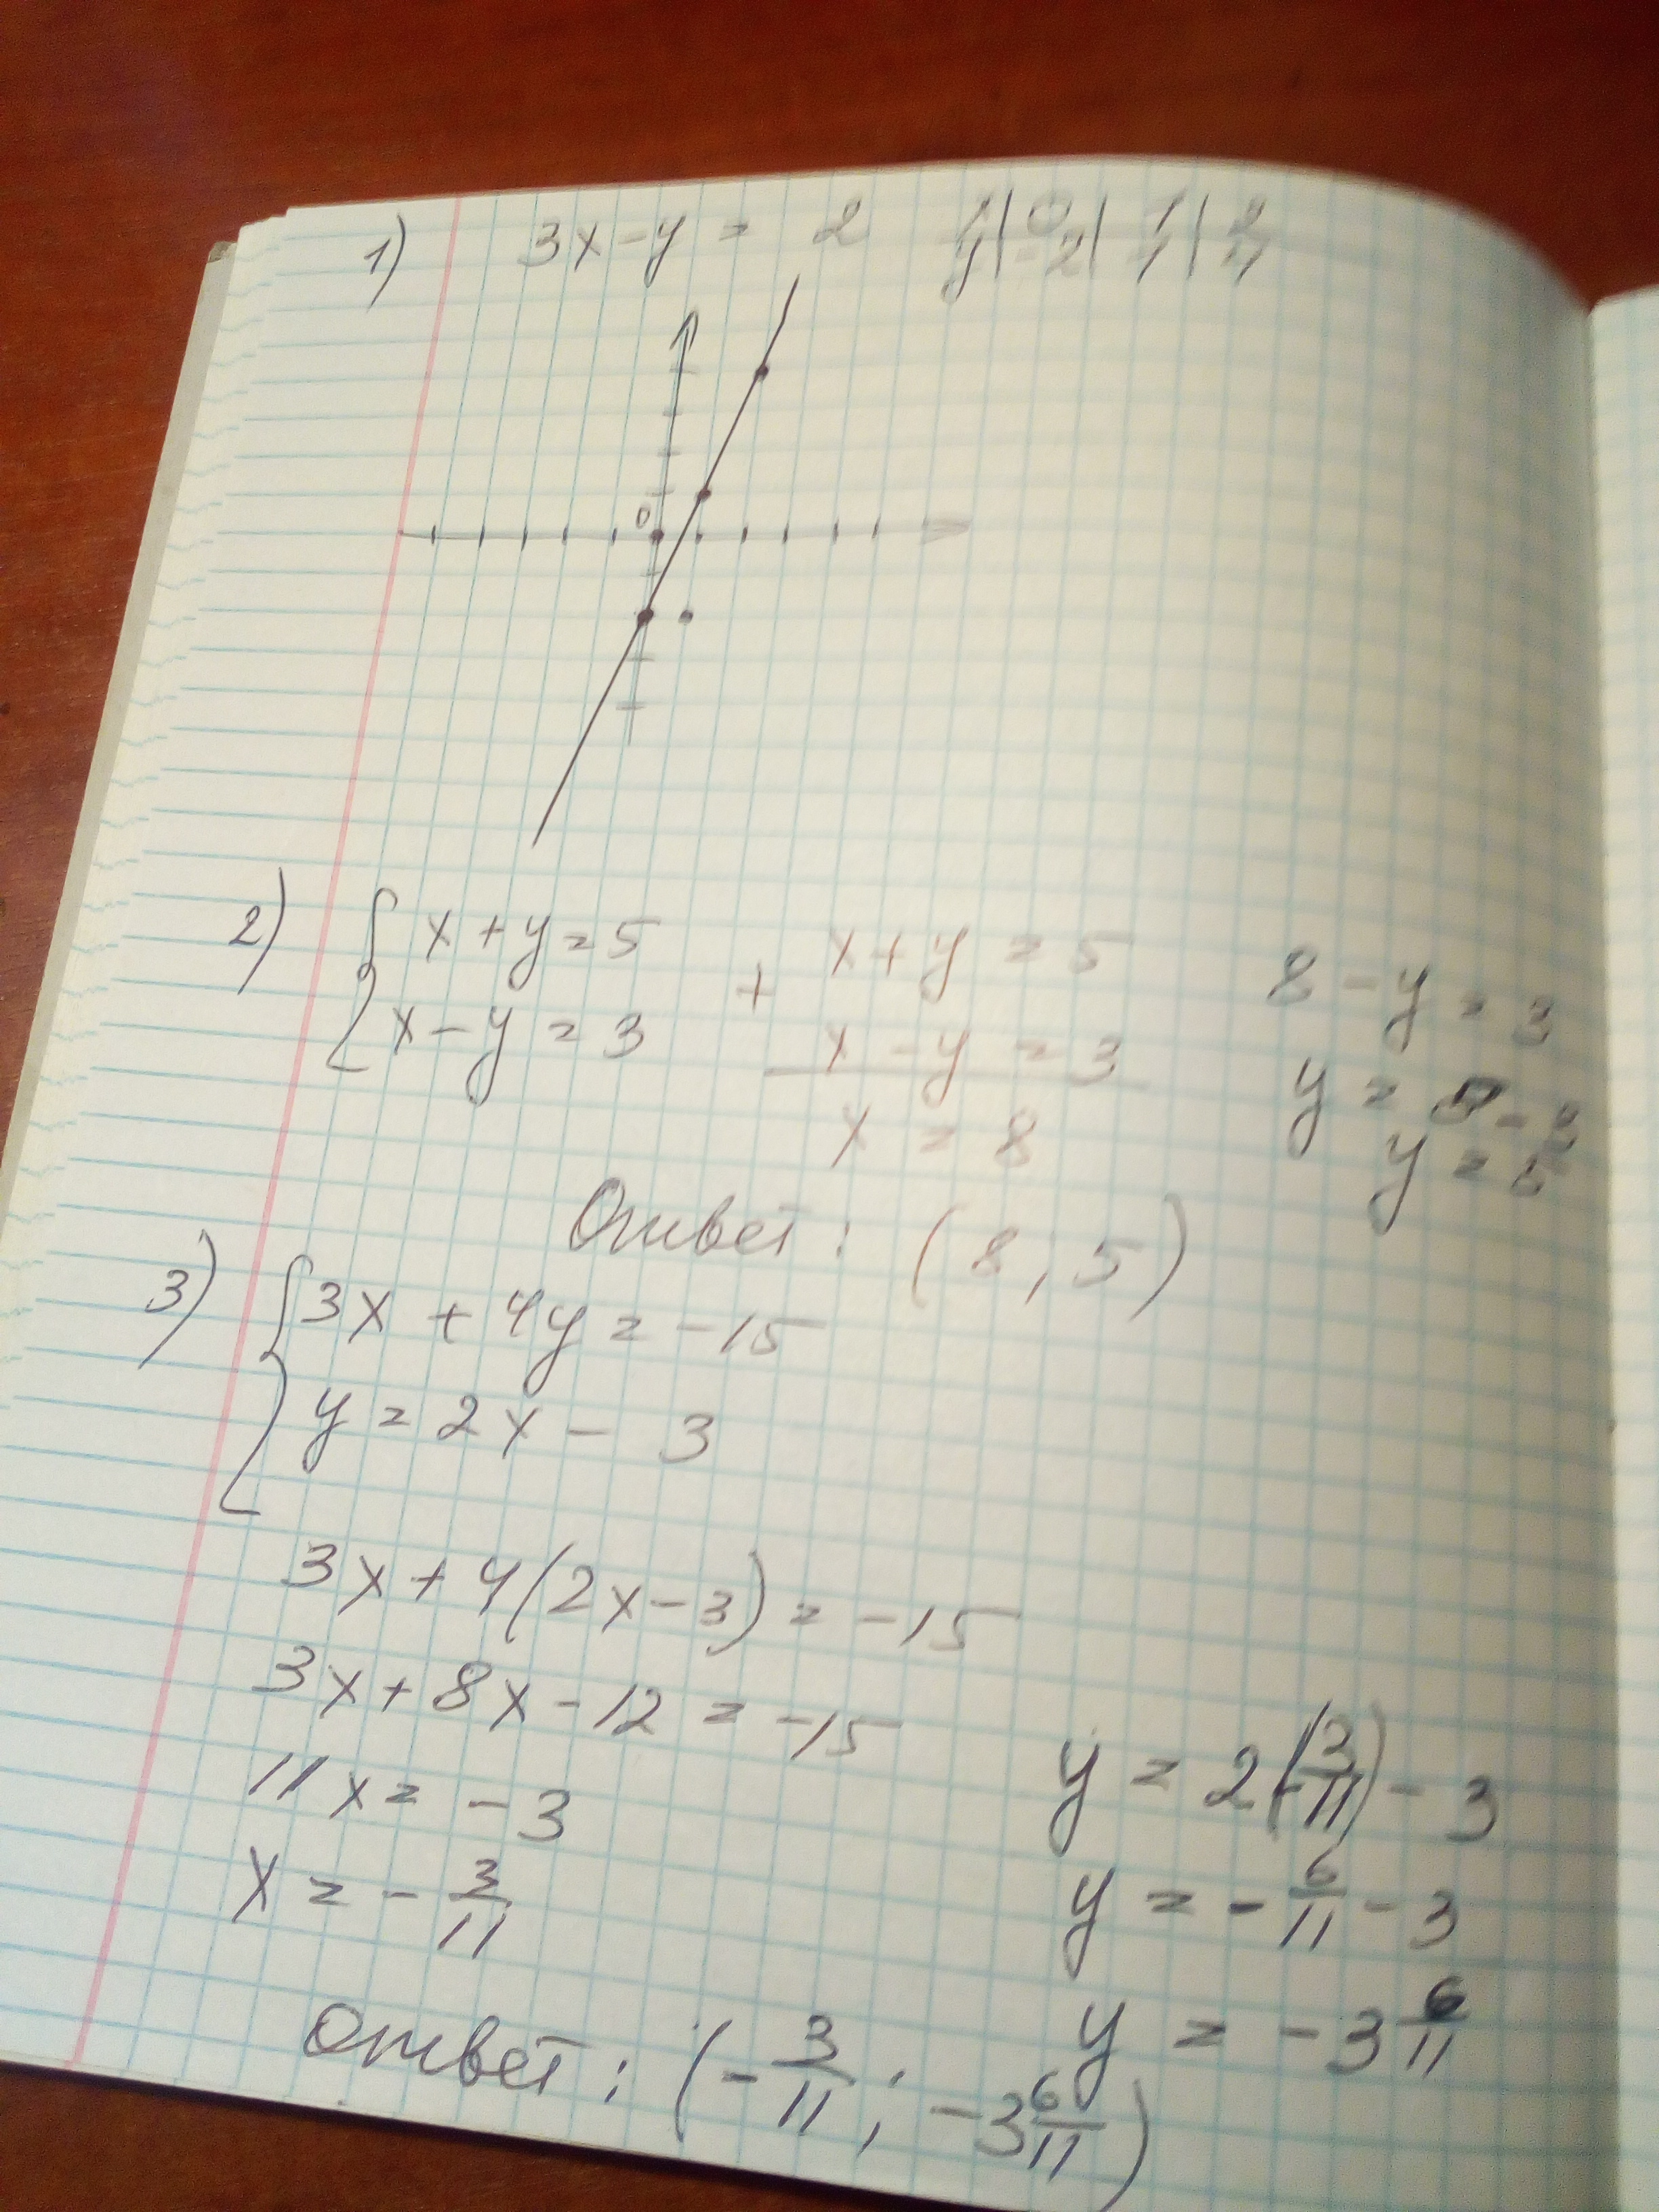 1) 3x - y = 2
x | 0 | 1 | 2
y | -2 | 1 | 4
0
2) { x + y = 5
x - y = 3
+ x + y = 5
x - y = 3
x = 8
8 - y = 3
y =
y = 5
Ответ: (8, 5)
3) { 3x + 4y = -15
y = 2x - 3
3x + 4(2x - 3) = -15
3x + 8x - 12 = -15
11x = -3
x = - 3/11
y = 2(- 3/11) - 3
y = - 6/11 - 3
y = -3 6/11
Ответ: (- 3/11; -3 6/11)